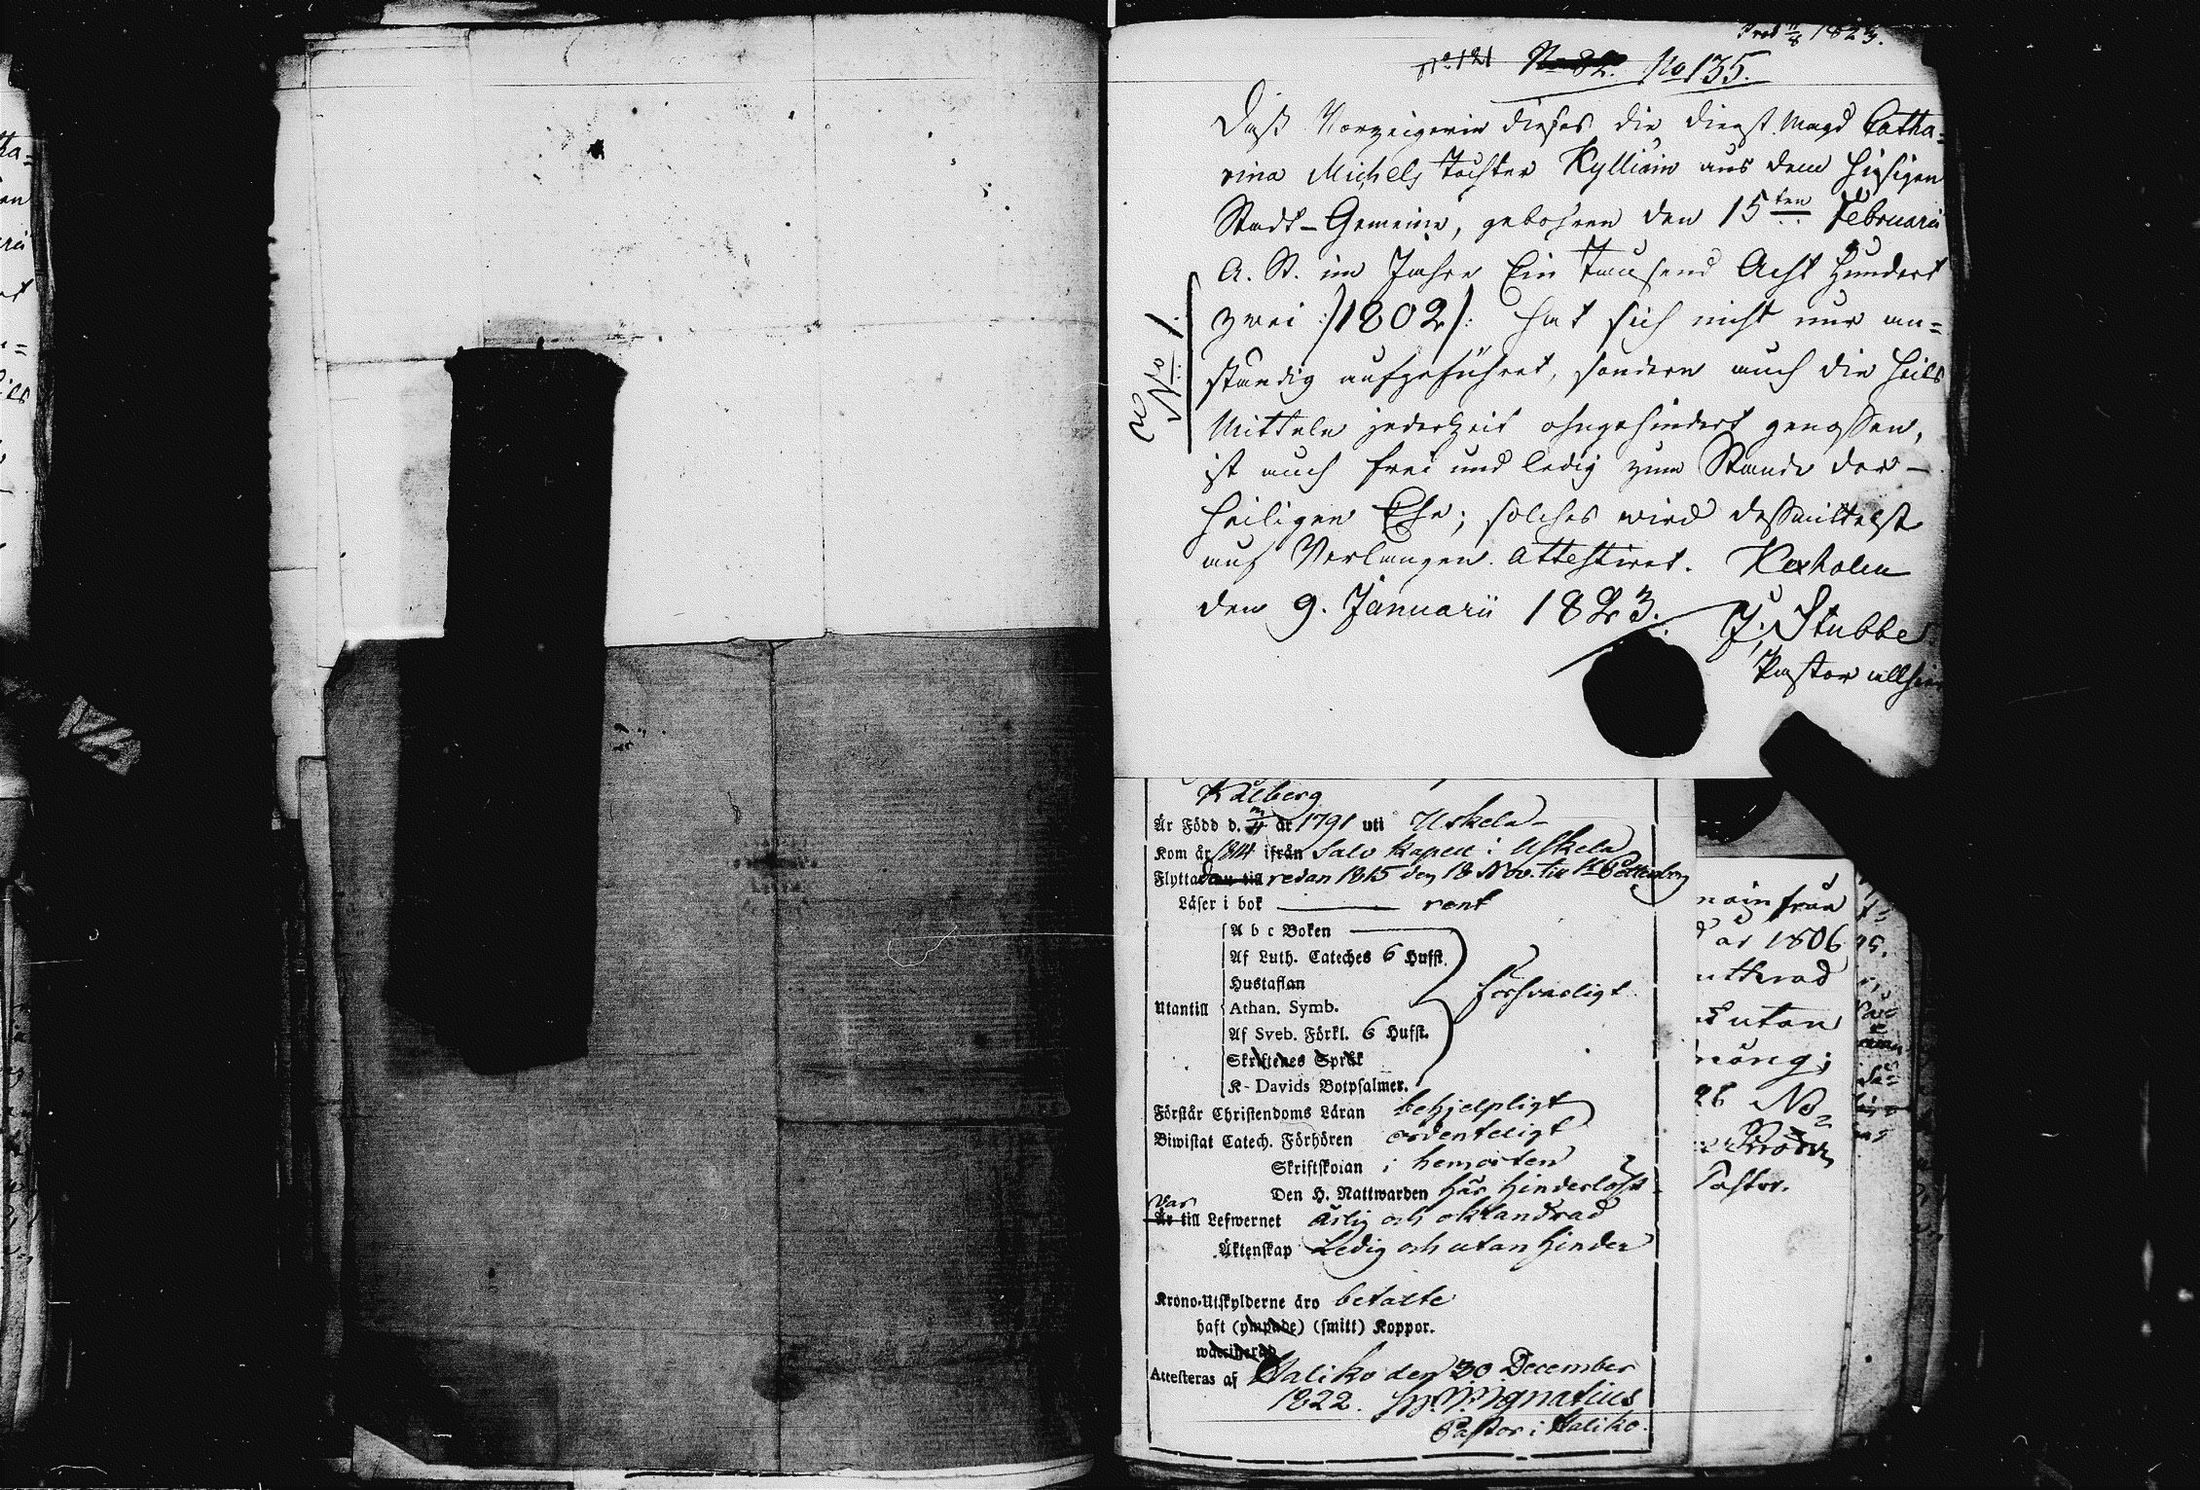 Prod 11/8 1823.
No 121 No 82. No 135.
Daß Vorzeigerin dieses die Dienst Magd Catha=
rina Michels Tochter Kylliäin aus dem hiesigen
Stadt-Gemeine, gebohren den 15ten Februarii
A. St. im Jahre Ein Tausend Acht Hundert
zwei /:1802/: hat sich nicht nur an=
ständig aufgeführet, sondern auch die Heils
Mitteln jederzeit ohngehindert genossen,
ist auch frei und ledig zum Stande der
heiligen Ehe; solches wird desmittelst
auf Verlangen attestiret. Kexholm
den 9. Januarii 1823. J. Stubbe
Pastor allhier
No 1
Kålberg
Är Född d. år 1791 uti Uskela
Kom år 1814 ifrån Salo Kapell i Uskela
Flyttade redan 1815 den 18 Nov. till St Petersborg
Läser i bok rent
A b c Boken
Af Luth. Cateches 6 Hufst.
Hustaflan
Utantill Athan. Symb. försvarligt
Af Sveb. Förkl. 6 Hufst.
Skriftenes Språk
K. Davids Botpsalmer.
Förstår Christendoms Läran behjelpligt
Biwistat Catech. Förhören ordenteligt
Skriftskolan i hemorten
Den H. Nattwarden här hinderlöst
Var
Är till Lefwernet ärlig och oklandrad
Äktenskap Ledig och utan hinder
Krono-Utskylderne äro betalte
haft (ympade) (smitt) Koppor.
Attesteras af Haliko den 30 December
1822. Ignatius
Pastor i Haliko.
från
år 1806
utan
No=
Pastor.